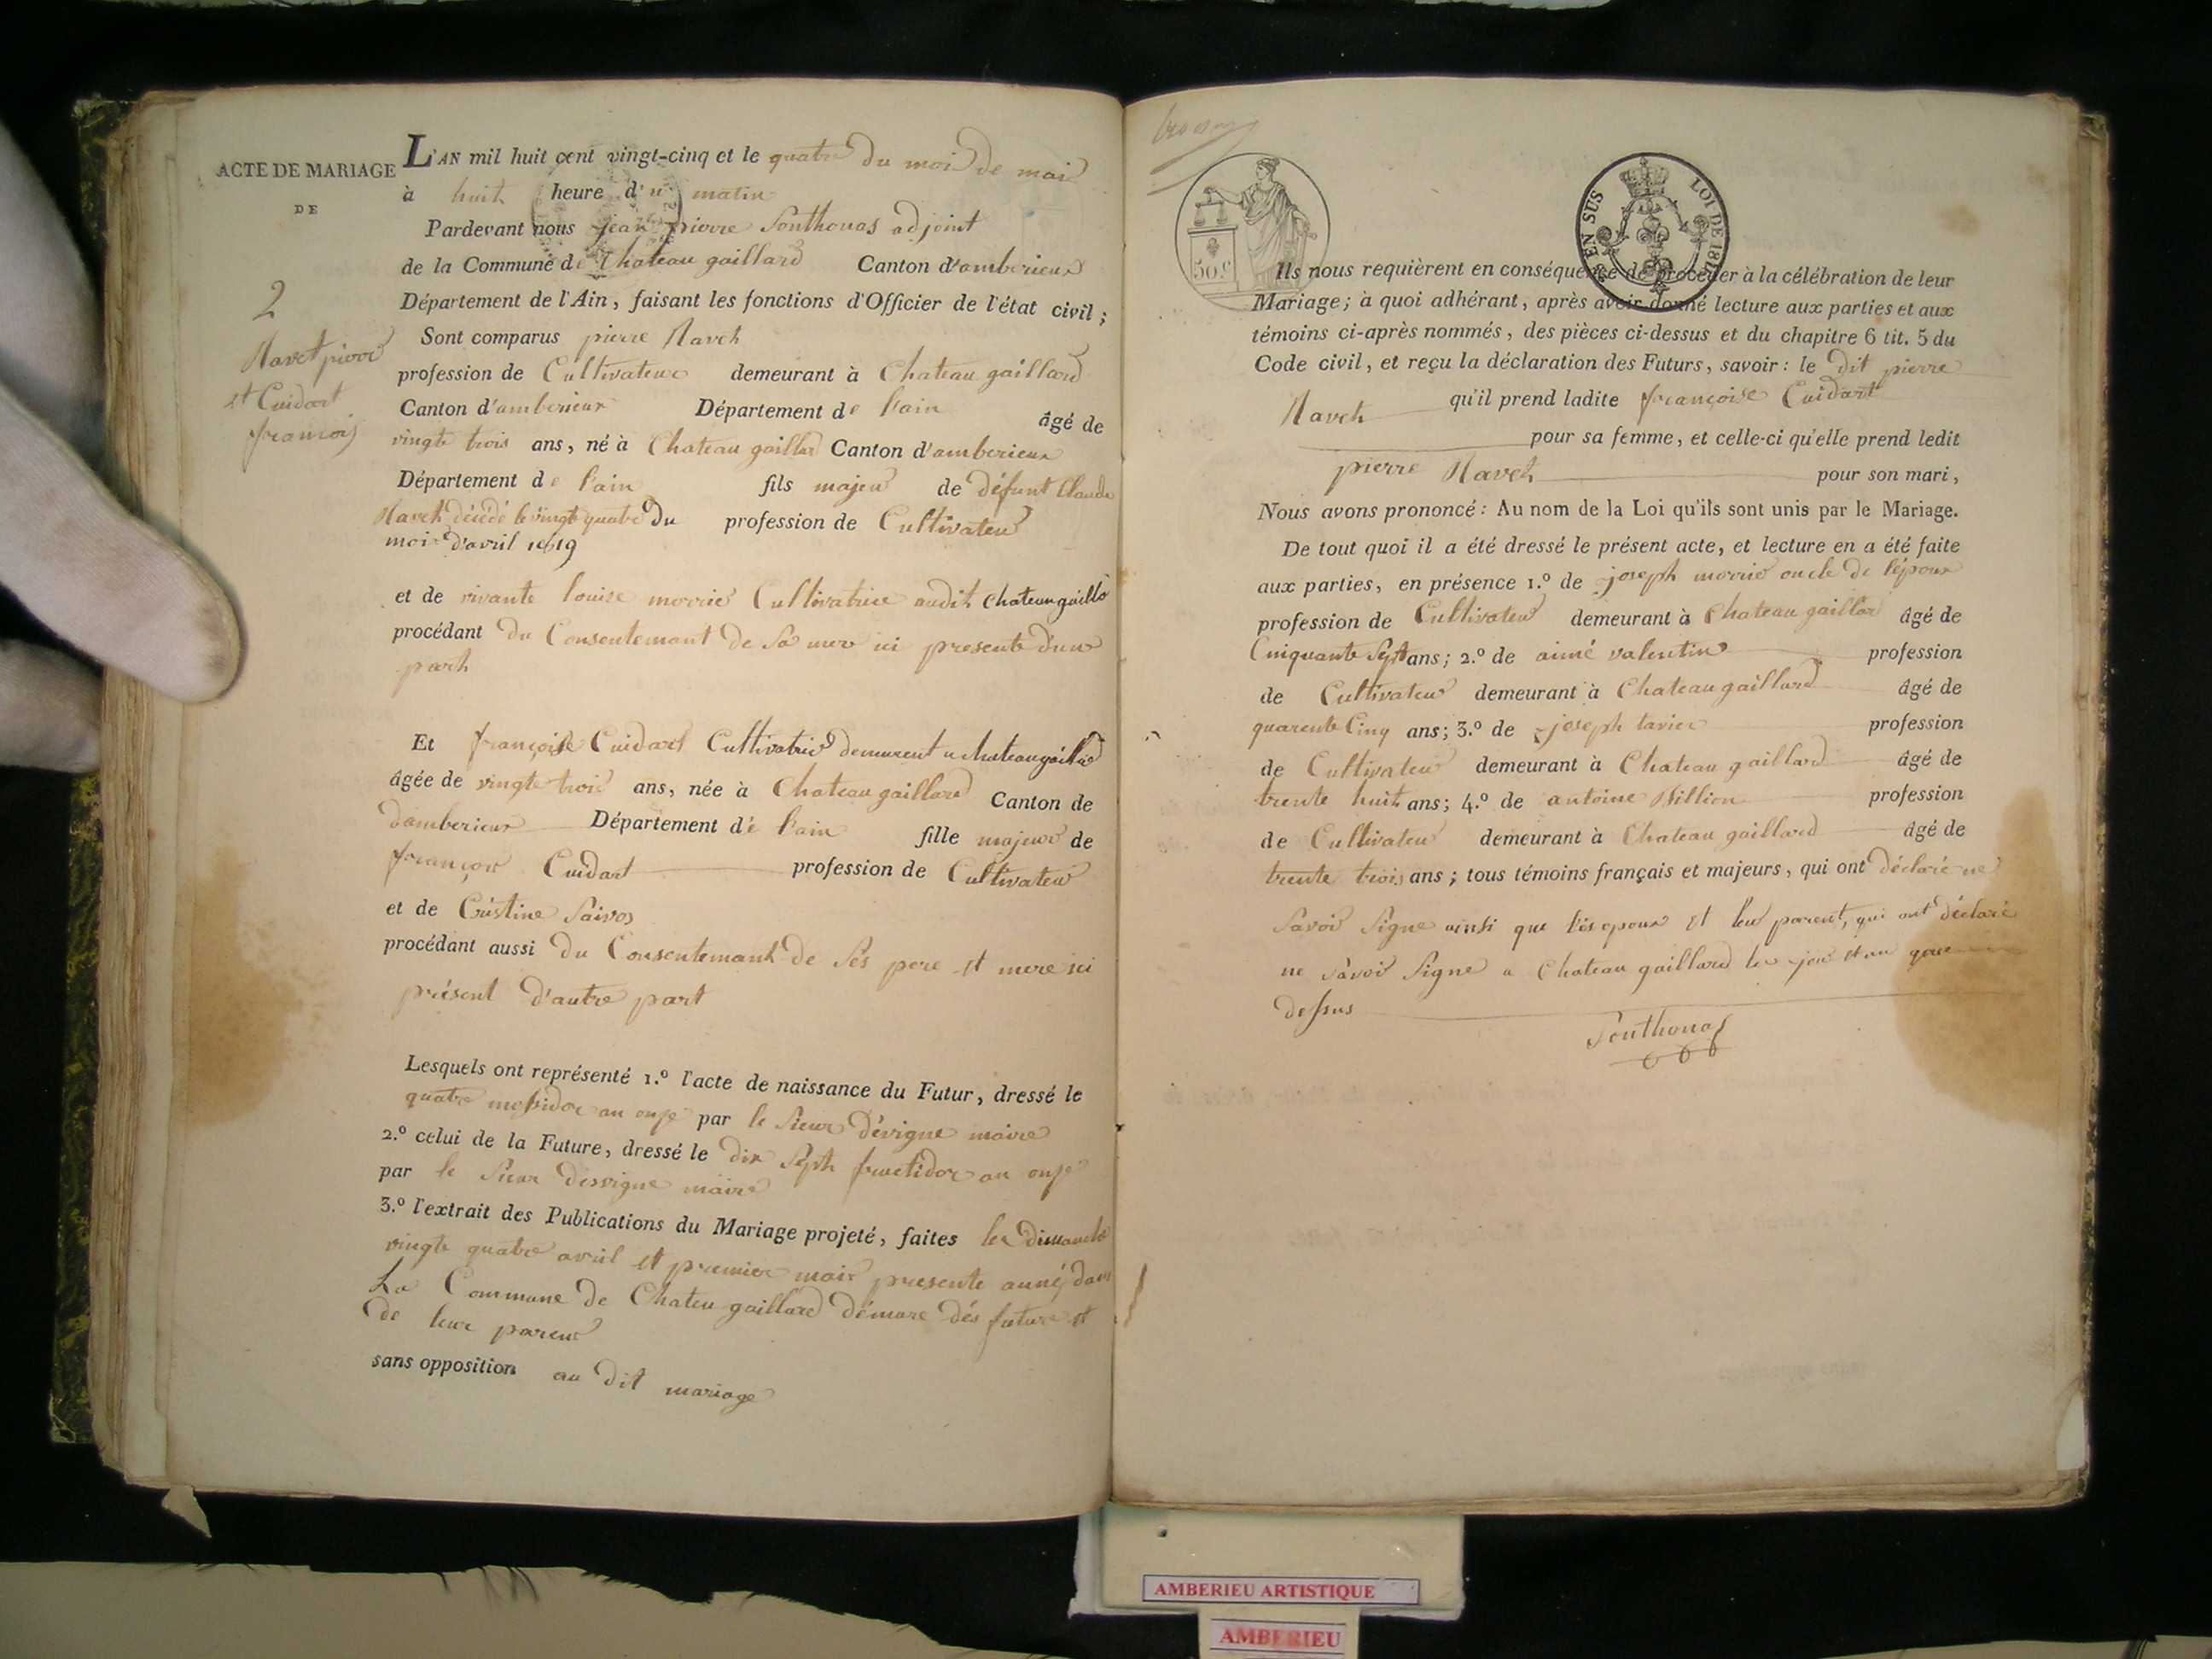 ACTE DE MARIAGE
DE
2
Navet pierre
et Cuidart
francois
L'AN mil huit cent vingt-cinq et le quatre du mois de mai
à huit heure d'u matin
Pardevant nous jean pierre Ponthonas adjoint
de la Commune de Chateau gaillard Canton d'amberieux
Département de l'Ain, faisant les fonctions d'Officier de l'état civil;
Sont comparus pierre Naveh
profession de Cultivateur demeurant à Chateau gaillard
Canton d'amberieux Département de l'ain âgé de
vingte trois ans, né à Chateau gaillar Canton d'amberieux
Département de l'ain fils majeur de défunt Claude
Naveh décédé le vingt quatre du profession de Cultivateur
mois d'avril 1819
et de vivante louise morrie Cultivatrice audit chateaugaillâ
procédant du Consentemant de Sa mere ici presente d'une
parh
Et françoise Cuidart Cultivatrice demeurent a chateaugaillar
âgée de vingte trois ans, née à Chateau gaillard Canton de
d'amberieux Département de l'ain fille majeure de
françois Cuidart profession de Cultivateur
et de Cristine Saivos
procédant aussi du Consentemant de Ses pere et mere ici
présent d'autre part
Lesquels ont représenté 1.º l'acte de naissance du Futur, dressé le
quatre messidor an onze par le Sieur dévigne maire
2.º celui de la Future, dressé le dix Seph fructidor an onze
par le Sieur dissvigne maire
3.º l'extrait des Publications du Mariage projeté, faites les dimanche
vingte quatre avril et premier mais presente anné dans
La Commune de Chateu gaillard démure dés future et
de leur parent
sans opposition au dit mariage
50.c
EN SUS LOI DE 181
Ils nous requièrent en conséquence de procéder à la célébration de leur
Mariage; à quoi adhérant, après avoir donné lecture aux parties et aux
témoins ci-après nommés, des pièces ci-dessus et du chapitre 6 tit. 5 du
Code civil, et reçu la déclaration des Futurs, savoir: le dit pierre
Naveh qu'il prend ladite françoise Cuidart
pour sa femme, et celle-ci qu'elle prend ledit
pierre Naveh pour son mari,
Nous avons prononcé: Au nom de la Loi qu'ils sont unis par le Mariage.
De tout quoi il a été dressé le présent acte, et lecture en a été faite
aux parties, en présence 1.º de joseph morrie oncle de l'époux
profession de Cultivateur demeurant à Chateau gaillar âgé de
Cinquante Sept ans; 2.º de aimé valentin profession
de Cultivateur demeurant à Chateau gaillard âgé de
quarente Cinq ans; 3.º de joseph tavier profession
de Cultivateur demeurant à Chateau gaillard âgé de
trente huit ans; 4.º de antoine Billion profession
de Cultivateur demeurant à Chateau gaillard âgé de
trente trois ans; tous témoins français et majeurs, qui ont déclaré ne
Savoir Signe ainsi que les epoux et leur parent, qui ont déclaré
ne Savoir Signe a Chateau gaillard les jour et an que
dessus
Ponthonas
AMBERIEU ARTISTIQUE
AMBERIEU